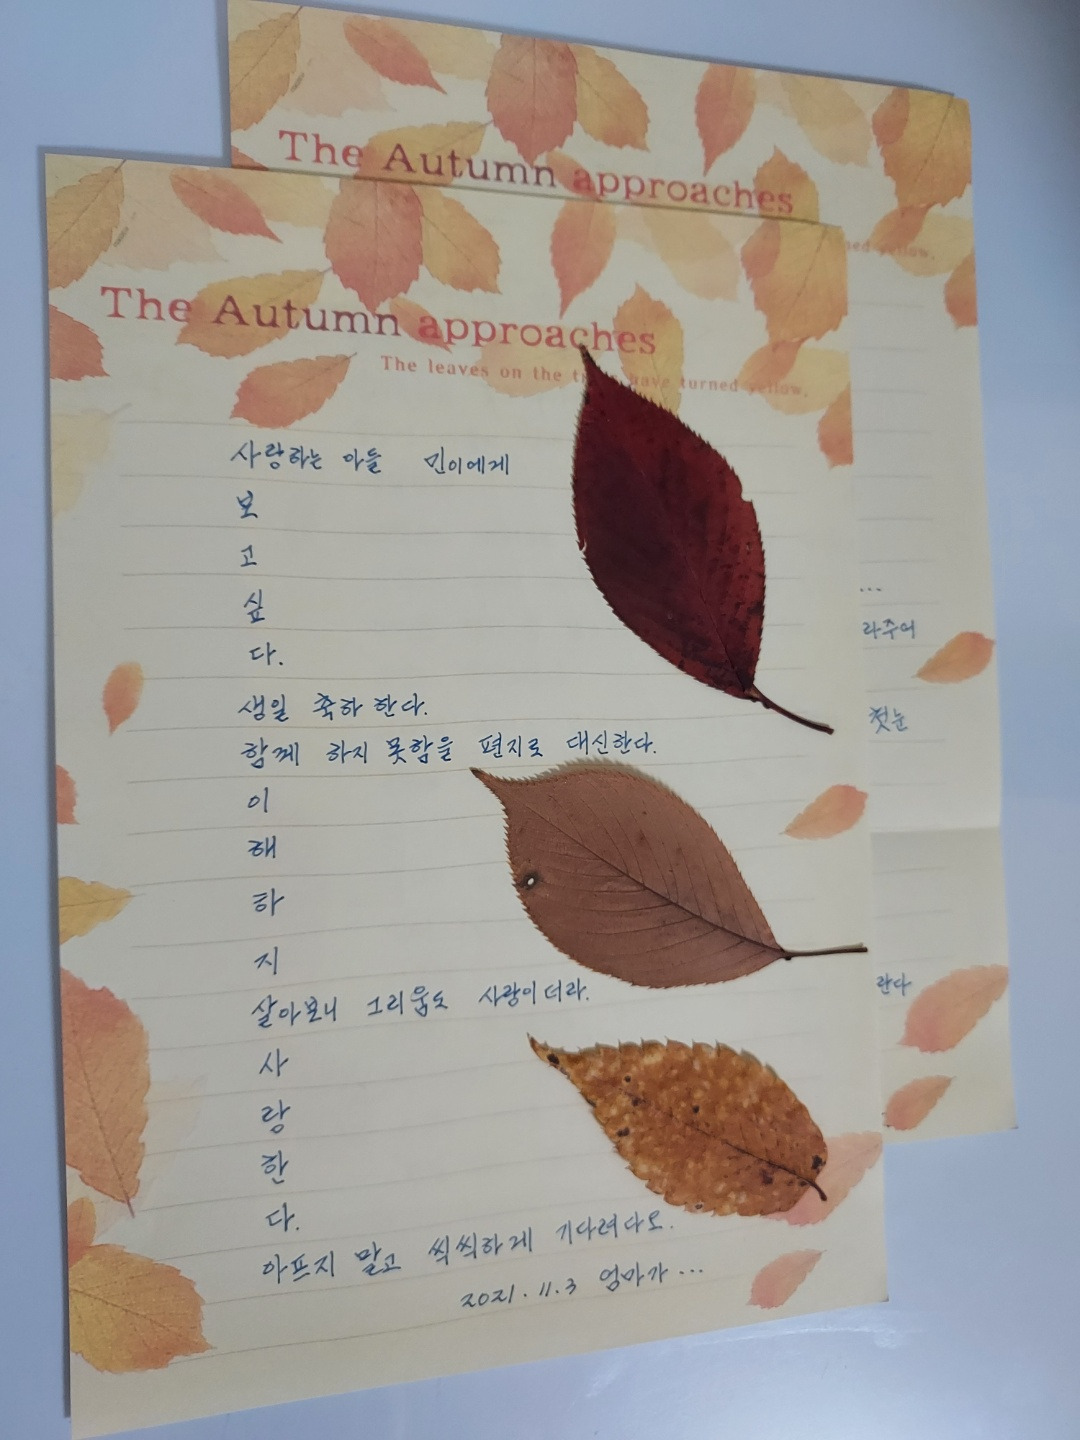 The Autumn approaches
The Autumn approaches
The leaves on the have turned yellow.
사랑하는 아들 민이에게
보
고
싶
다.
생일 축하 한다.
함께 하지 못함을 편지로 대신한다.
이
해
하
지
살아보니 그리움도 사랑이더라.
사
랑
한
다.
아프지 말고 씩씩하게 기다려다오.
2021.11.3 엄마가...
yellow.
...
라주어
첫눈
란다